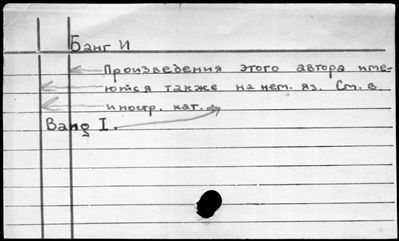 Банг И
Произведения этого автора име-
ются также на нем. яз. См. в
иностр. кат.
Bang I.